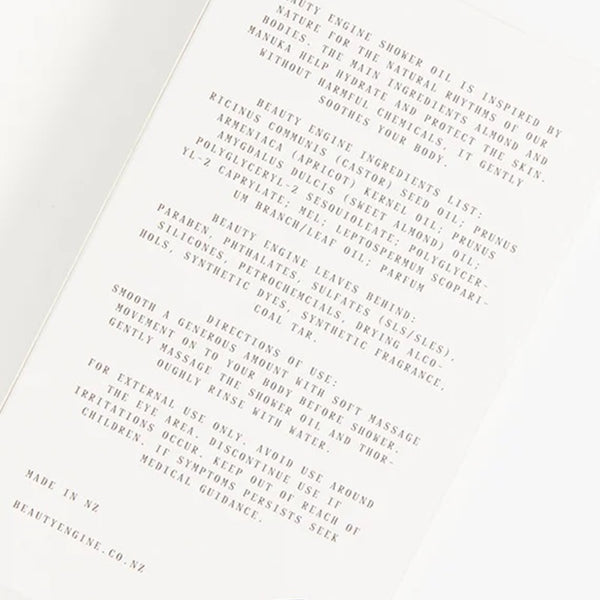 AUTY ENGINE SHOWER OIL IS INSPIRED BY
NATURE FOR THE NATURAL RHYTHMS OF OUR
BODIES. THE MAIN INGREDIENTS ALMOND AND
MANUKA HELP HYDRATE AND PROTECT THE SKIN.
WITHOUT HARMFUL CHEMICALS, IT GENTLY
SOOTHES YOUR BODY.
BEAUTY ENGINE INGREDIENTS LIST:
RICINUS COMMUNIS (CASTOR) SEED OIL; PRUNUS
ARMENIACA (APRICOT) KERNEL OIL; PRUNUS
AMYGDALUS DULCIS (SWEET ALMOND) OIL;
POLYGLYCERYL-Z SESQUIOLEATE; POLYGLYCER-
YL-Z CAPRYLATE; MEL; LEPTOSPERMUM SCOPARI-
UM BRANCH/LEAF OIL; PARFUM
BEAUTY ENGINE LEAVES BEHIND:
PARABEN, PHTHALATES, SULFATES (SLS/SLES),
SILICONES, PETROCHEMCIALS, DRYING ALCO-
HOLS, SYNTHETIC DYES, SYNTHETIC FRAGRANCE,
COAL TAR.
DIRECTIONS OF USE:
SMOOTH A GENEROUS AMOUNT WITH SOFT MASSAGE
MOVEMENT ON TO YOUR BODY BEFORE SHOWER.
GENTLY MASSAGE THE SHOWER OIL AND THOR-
OUGHLY RINSE WITH WATER.
FOR EXTERNAL USE ONLY. AVOID USE AROUND
THE EYE AREA. DISCONTINUE USE IF
IRRITATIONS OCCUR. KEEP OUT OF REACH OF
CHILDREN. IF SYMPTOMS PERSISTS SEEK
MEDICAL GUIDANCE.
MADE IN NZ
BEAUTYENGINE.CO.NZ